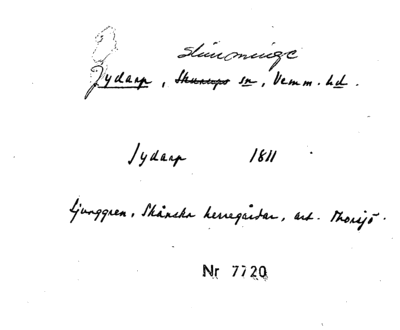 Slimminge
Jydarp, Skurups sn, Vemm. hd.
Jydarp 1811
Ljunggren, Skånska herregårdar, art. Thorsjö.
Nr 7720